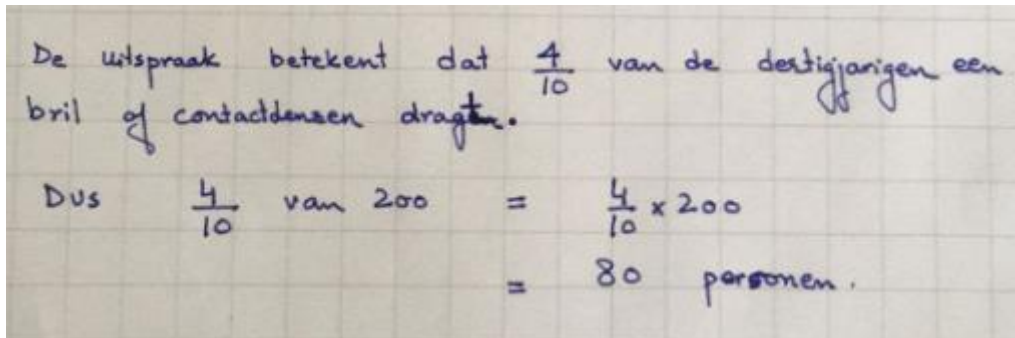 De uitspraak betekent dat 4/10 van de dertigjarigen een
bril of contactdensen dragt.
Dus 4/10 van 200 = 4/10 x 200
= 80 personen.